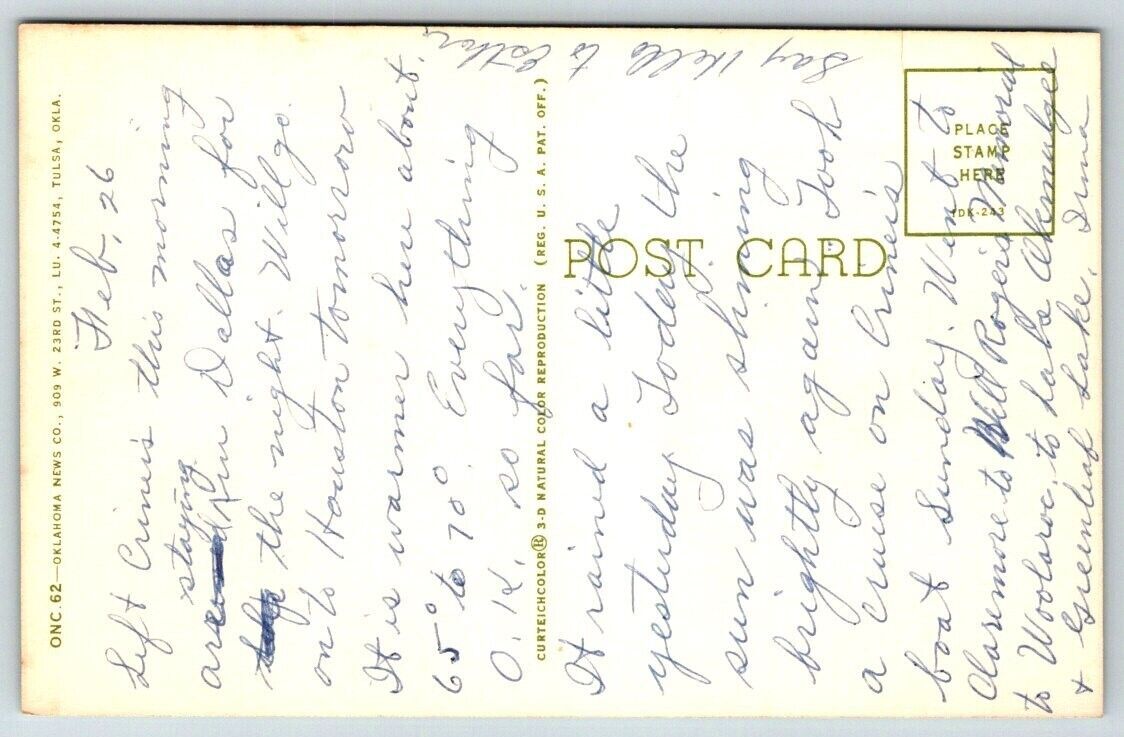 ONC. 62—OKLAHOMA NEWS CO., 909 W. 23RD ST., LU. 4-4754, TULSA, OKLA.
Feb, 26
Left Criner's this morning
staying
are in Dallas for
the night. Will go
on to Houston tomorrow
It is warmer here about
65° to 70° Everything
O. K. so far.
CURTEICHCOLOR® 3-D NATURAL COLOR REPRODUCTION (REG. U. S. A. PAT. OFF.)
POST CARD
PLACE
STAMP
HERE
1DK-243
It rained a little
yesterday. Today the
sun was shining
brightly again. Took
a cruise on Criner's
boat Sunday. Went to
Claremore to Will Rogers Memoral
to Woolaroc, to Lake Okmulgee
& Greenleaf Lake. Irma
Say Hello to Esther.